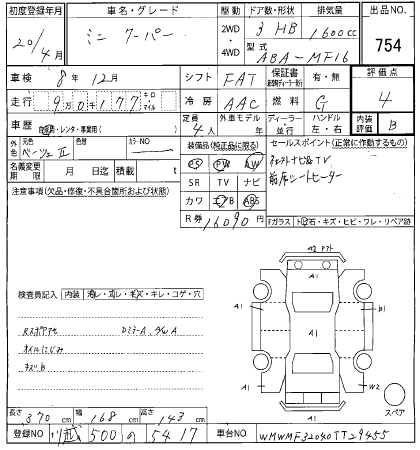 初度登録年月 車名・グレード 駆動 ドア数・形状 排気量 出品NO.
20/4月 ミニ クーパー 2WD・4WD 3 HB 1600cc 754
型式 ABA-MF16
車検 8年12月 シフト FAT 保証書 有・無 評価点
走行 9万0千177 キロ・マイル 冷房 AAC 燃料 G 4
車歴 自家用・レンタ・事業用( ) 定員 4人 外車モデル 年 ディーラー・並行 ハンドル 左・右 内装評価 B
外色 元色 ベージュII 色替 カラーNO 装備品(純正品に限る) セールスポイント(正常に作動するもの)
PS PW AW
名義変更期限 月 日迄 積載 t SR TV ナビ
前席シートヒーター
注意事項(欠品・修復・不具合箇所および状態) カワ エアB ABS
R券 16090円
Fガラス ト石・キズ・ヒビ・ワレ・リペア跡
A2
A1
検査員記入 内装 汚レ・コゲ・穴
A1 B1
オイルにじみ
キズb
A1 W2
A1
スペア
長さ 370cm 幅 168cm 高さ 143cm
登録NO 500 の 5417 車台NO WMWMF32040TT29455